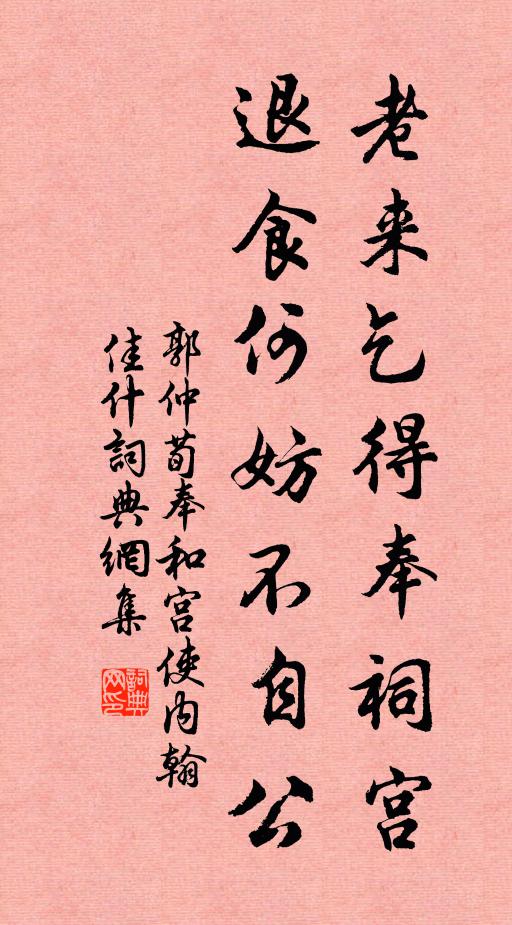 老来乞得奉祠宫
退食何妨不自公
郭仲荀奉和宫使内翰
佳什詞典網集
詞典网印